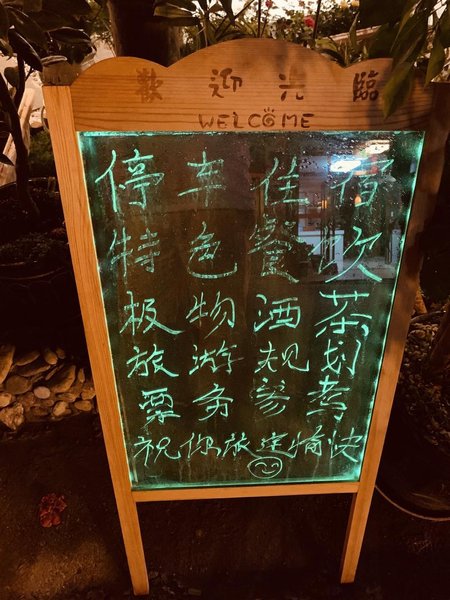 歡迎光臨
WELCOME
停车住宿
特色餐饮
极物酒茶
旅游规划
票务参考
祝你旅途愉快